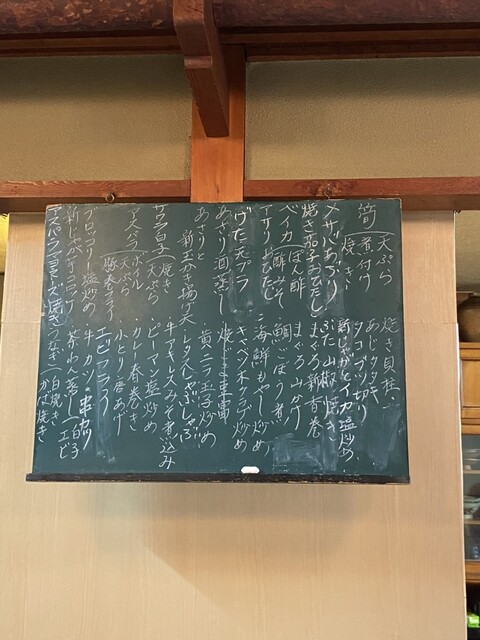 筍 天ぷら
煮付け
焼き
〆サバあぶり
焼き茄子おひたし
ベイカ ぽん酢
酢みそ
げそ天プラ
あさり酒蒸し
あさりと
新玉かき揚げ天
サラ豆 焼き
天ぷら
アスパラ ボイル
天ぷら
豚巻フライ
ブロッコリー塩炒め
新じゃが
アスパラマヨネーズ焼き
焼き貝柱
あじタタキ
タコブツ切り
新じゃがとイカ塩炒め
ぶた山椒焼き
まぐろ新香巻
まぐろ山かけ
鯛ごぼう煮
海鮮もやし炒め
キャベツホタテ炒め
黄ニラ玉子炒め
レタスしゃぶしゃぶ
牛アキレスみそ煮込み
ピーマン塩炒め
カレー春巻き
小とり唐あげ
エビフライ
牛カツ・串カツ
茶わんむし 白子
エビ
うなぎ 白焼き
かば焼き